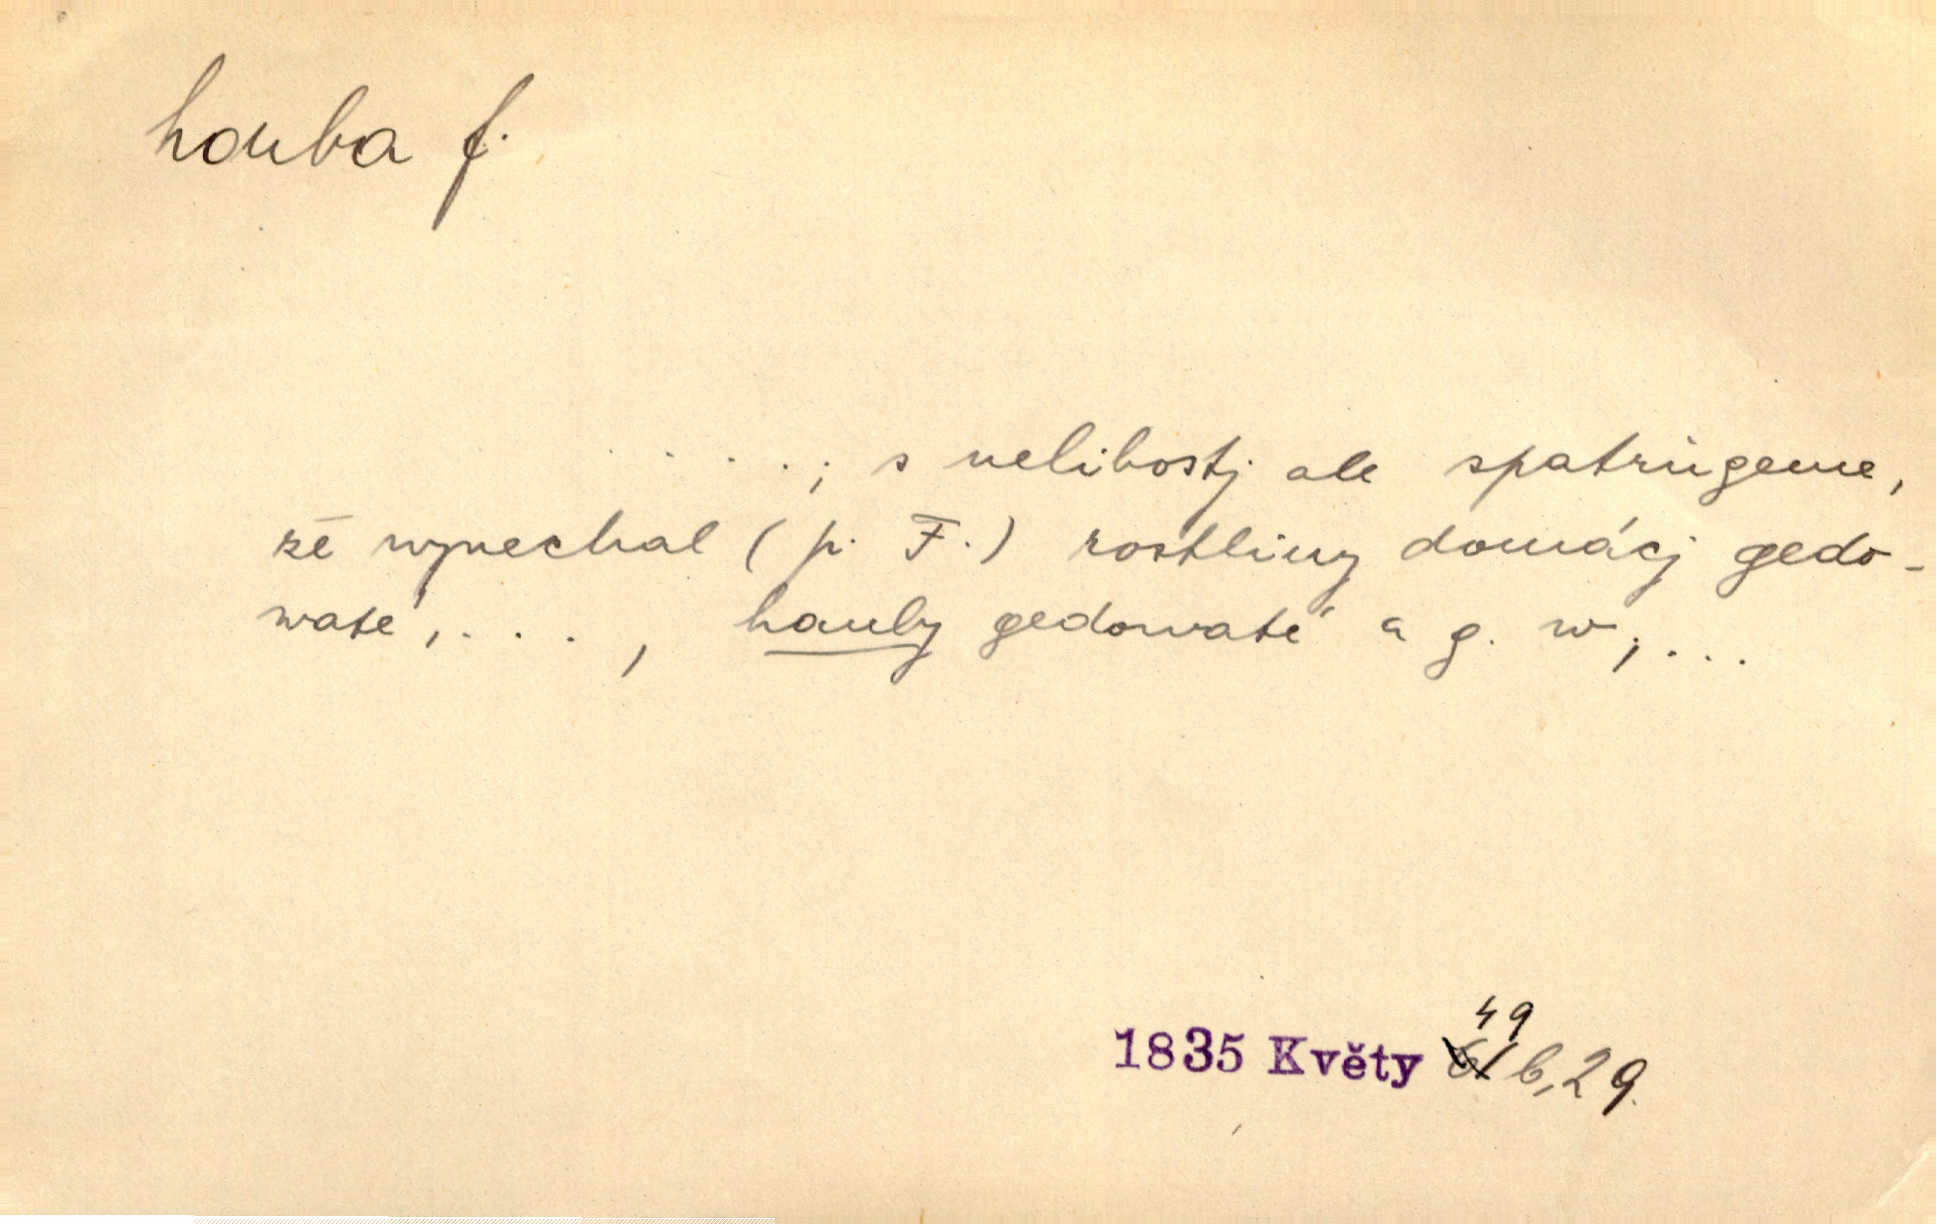 houba f.
. . . . ; s nelibostj ale spatrugeme,
že wynechal (p. F.) rostliny domácj gedo-
waté, . . . , hauby gedowaté a g. w; . . .
49
1835 Květy b, 29.